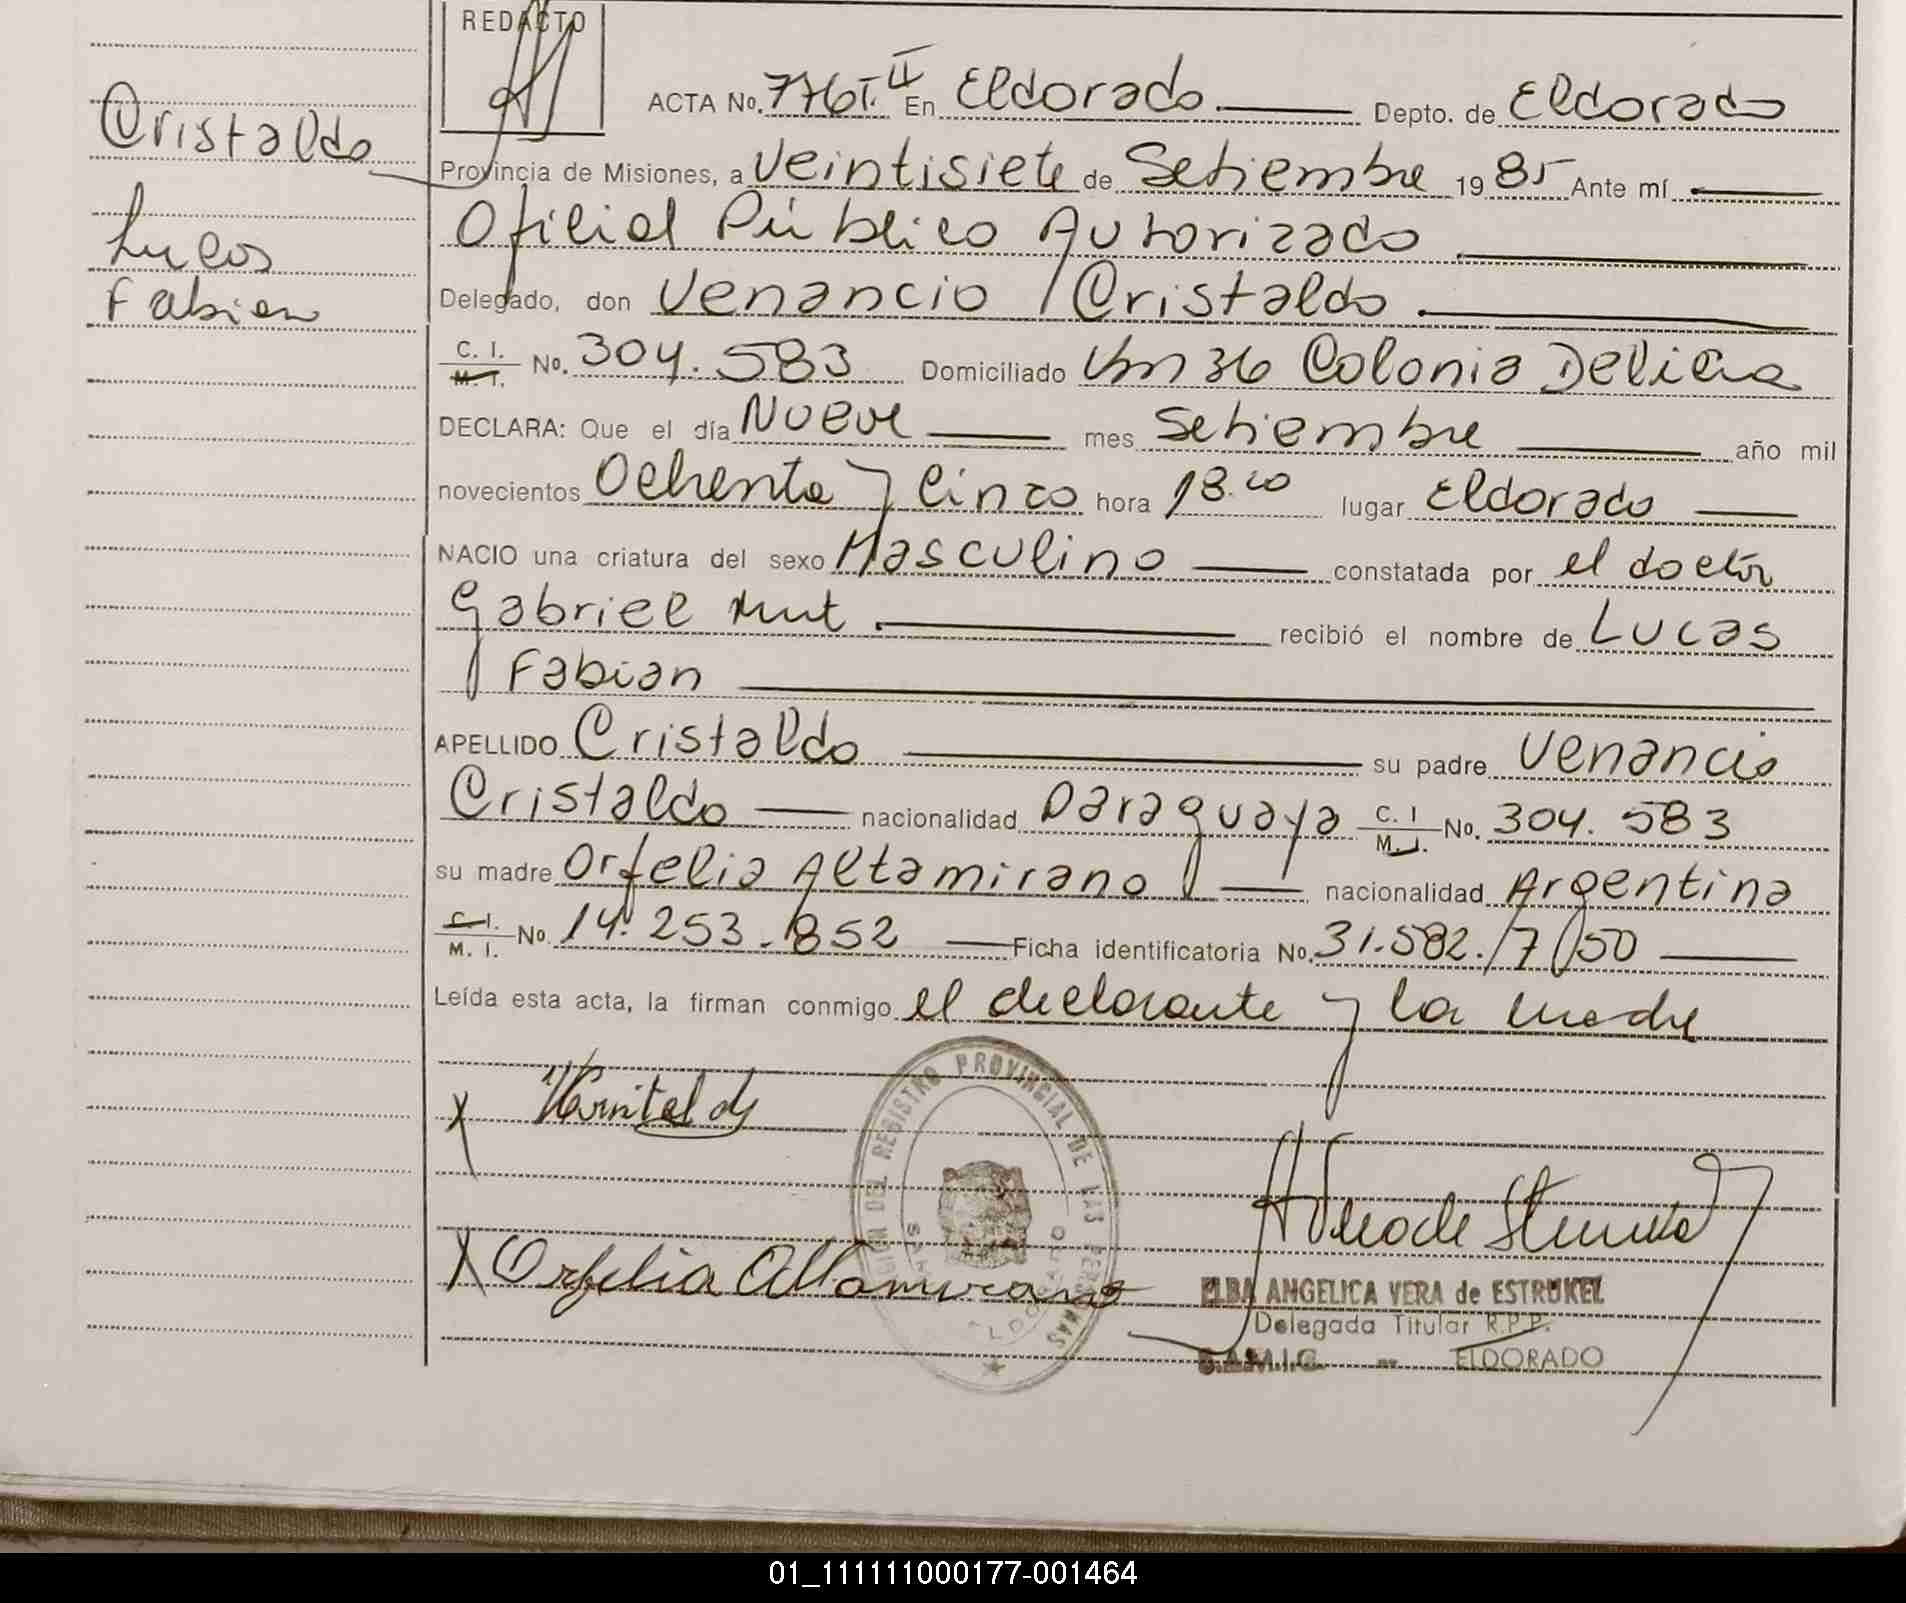 REDACTO
ACTA No. 776 T. II En Eldorado Depto. de Eldorado
Cristaldo
Provincia de Misiones, a Veintisiete de Setiembre 1985 Ante mí
Lucas
Oficial Público Autorizado
Fabian
Delegado, don Venancio Cristaldo
C. I. M. I. No. 304.583 Domiciliado Km 36 Colonia Delicia
DECLARA: Que el día Nueve mes Setiembre año mil
novecientos Ochenta y Cinco hora 18. lugar Eldorado
NACIO una criatura del sexo Masculino constatada por el doctor
Gabriel recibió el nombre de Lucas
Fabian
APELLIDO Cristaldo su padre Venancio
Cristaldo nacionalidad Paraguaya C. I M. I. No. 304.583
su madre Orfelia Altamirano nacionalidad Argentina
C. I. M. I. No. 14.253.852 Ficha identificatoria No. 31.582./7/50
Leída esta acta, la firman conmigo el declarante y la madre
X
X Orfelia Altamirano
DEL REGISTRO PROVINCIAL DE LAS PERSONAS
ELDORADO
ELBA ANGELICA VERA de ESTRUKEL
Delegada Titular R.P.P.
S.A.M.I.C. - ELDORADO
01_111111000177-001464